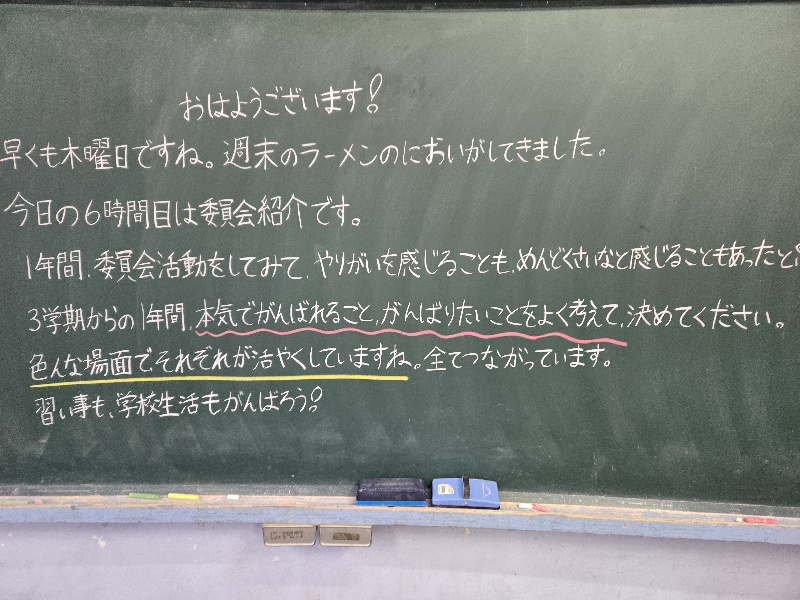 おはようございます!
早くも木曜日ですね。週末のラーメンのにおいがしてきました。
今日の6時間目は委員会紹介です。
1年間、委員会活動をしてみて、やりがいを感じることも、めんどくさいなと感じることもあったと
3学期からの1年間、本気でがんばれること、がんばりたいことをよく考えて、決めてください。
色んな場面でそれぞれが活やくしていますね。全てつながっています。
習い事も、学校生活もがんばろう!